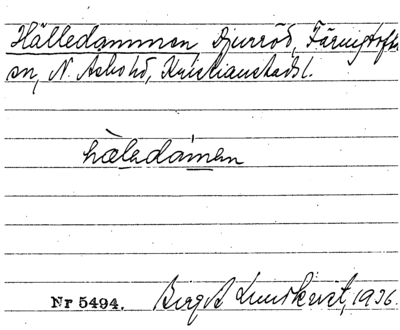 Hälledammen, Djurröd, Färingtofta
sn, N. Åsbo hd, Kristianstads l.
hàledámen
Nr 5494. Birgit Lundkvist, 1936.